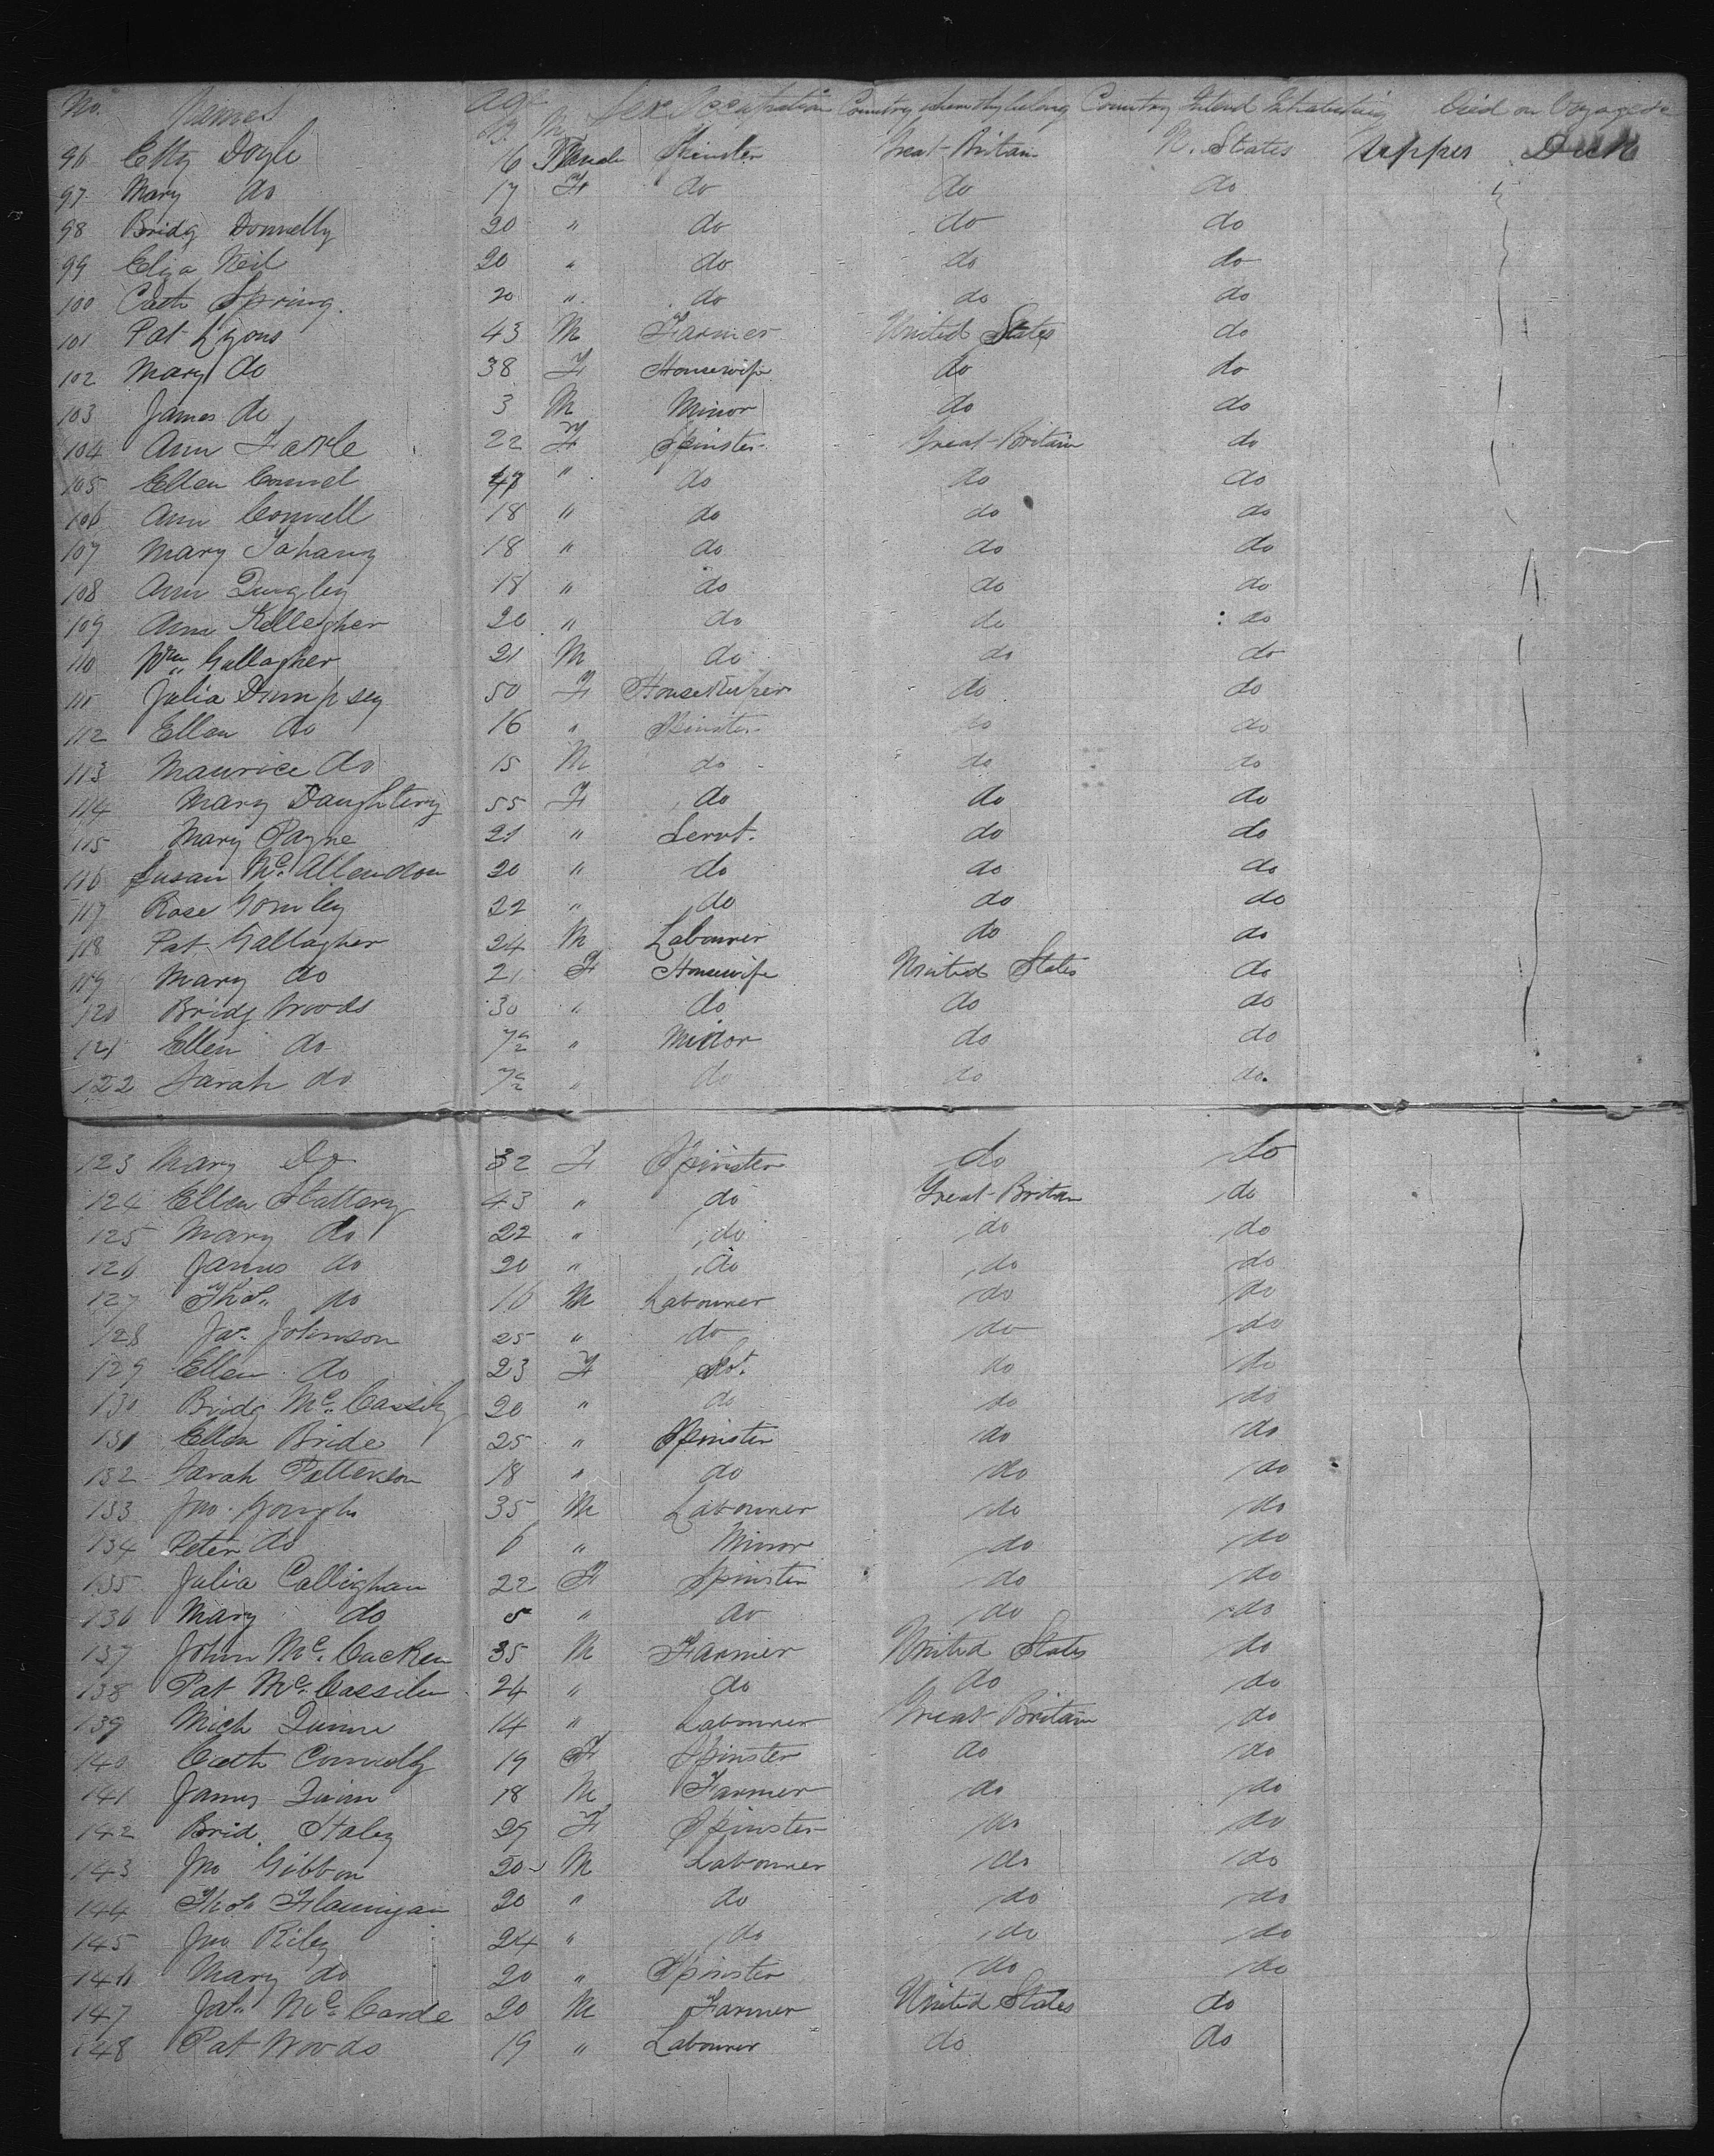 No. Names Age Sex Occupation Country whom they belong Country Intend Inhabiting Died on Voyage
Yr. M
96 Doyle 16 Female Spinster Great Britain U. States Upper Deck
97 Mary do 17 F do do do
98 Bridg Donnelly 20 " do do do
99 Eliza Neil 20 " do do do
100 Cath Spring 20 " do do do
101 Pat Lyons 43 M Farmer United States do
102 Mary do 38 F Housewife do do
103 James do 3 M Minor do do
104 Ann 22 F Spinster Great Britain do
105 Ellen Connel " do do do
106 Ann Connell 18 " do do do
107 Mary 18 " do do do
108 Ann 18 " do do do
109 Ann Kellegher 20 " do do do
110 Wm Gallagher 21 M do do do
111 Julia Dumpsey 50 F Housekeeper do do
112 Ellen do 16 " Spinster do do
113 Maurice do 15 M do do do
114 Mary Daughtery 55 F do do do
115 Mary Payne 21 " Servt. do do
116 Susan Mc. Allendon 20 " do do do
117 Rose Gomley 22 " do do do
118 Pat Gallagher 24 M Labourer do do
119 Mary do 21 F Housewife United States do
120 Bridg Woods 30 " do do do
121 Ellen do 7 " Minor do do
122 Sarah do 7 " do do do.
123 Mary Do 32 F Spinster do do
124 Ellen Slattery 43 " do Great Britain do
125 Mary do 22 " do do do
126 James do 20 " do do do
127 Thos. do 16 M Labourer do do
128 Jas. Johnson 25 " do do do
129 Ellen do 23 F Svt. do do
130 Bridg Mc. 20 " do do do
131 Ellen Bride 25 " Spinster do do
132 Sarah Patterson 18 " do do do
133 Jno. Gough 35 M Labourer do do
134 Peter do 6 " Minor do do
135 Julia Callighan 22 F Spinster do do
136 Mary do 5 " do do do
137 John Mc. Cacken 35 M Farmer United States do
138 Pat Mc. 24 " do do do
139 Mich Quinn 14 " Labourer Great Britain do
140 Cath Connolly 19 F Spinster do do
141 James Quinn 18 M Farmer do do
142 Brid. Staley 29 F Spinster do do
143 Jno Gibbon 20 M Labourer do do
144 Thos Flannigan 20 " do do do
145 Jno Riley 24 " do do do
146 Mary do 20 " Spinster do do
147 Mc. Carde 20 M Farmer United States do
148 Pat Woods 19 " Labourer do do